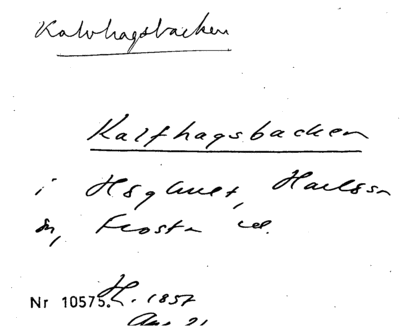 Kalvhagsbacken
Kalfhagsbacken
i Höghult, Harlösa
sn, Frosta hd.
Nr 10575. H. 1857
Aug. 21